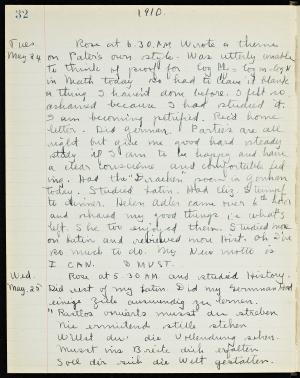 32
1910.
Tues.
May 24
Rose at 6.30 AM Wrote a theme
on Pater's own style. Was utterly unable
to think of proof for log m/n = log m - log N
in Math today so had to leave it blank
a thing I haven't done before. I felt so
ashamed because I had studied it.
I am becoming petrified. Rec'd home
letter. Did German. Parties are all
right but give me good hard steady
study if I am to be happy and have
a clear conscience and comfortable feel
ing. Had the "Drachen" poem in German
today. Studied Latin. Had Eliz. Stumpf
to dinner. Helen Adler came over 6th hour
and shared my good things i.e. what's
left. She too enjoyed them. Studied more
on Latin and reviewed more Hist. Oh I've
so much to do. My New motto is
I CAN. I MUST.
Wed.
May. 25
Rose at 5.30 AM and studied History.
Did rest of my Latin Did my German
einige Zeile auswendig zu lernen.
"Rastlos vorwärts musst du streben
Nie ermüdend stille stehen
Willst du die Vollendung sehen.
Musst ins Breite dich entfalten
Soll dir sich die Welt gestalten.